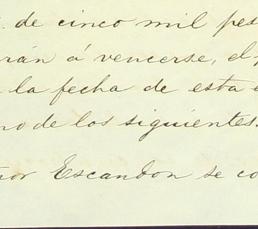 de cinco mil pes
rán á vencerse, el
la fecha de esta e
no de los siguientes.
or Escandon se co